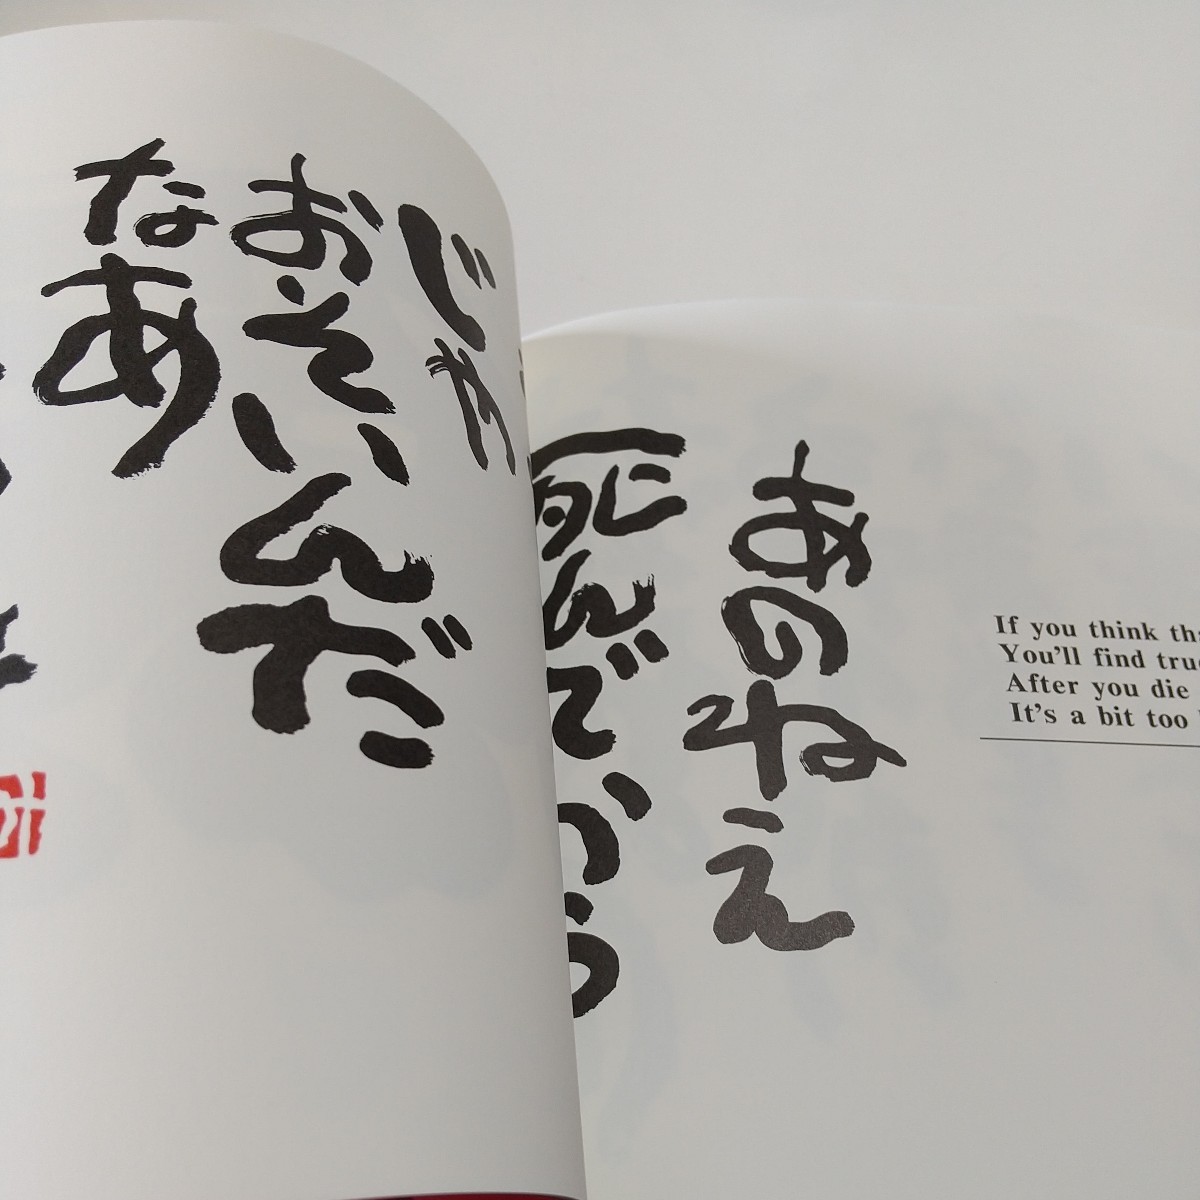 If you think
You'll find
After you die
It's a bit too
あのねえ
死んでから
じゃ
おそいんだ
なあ